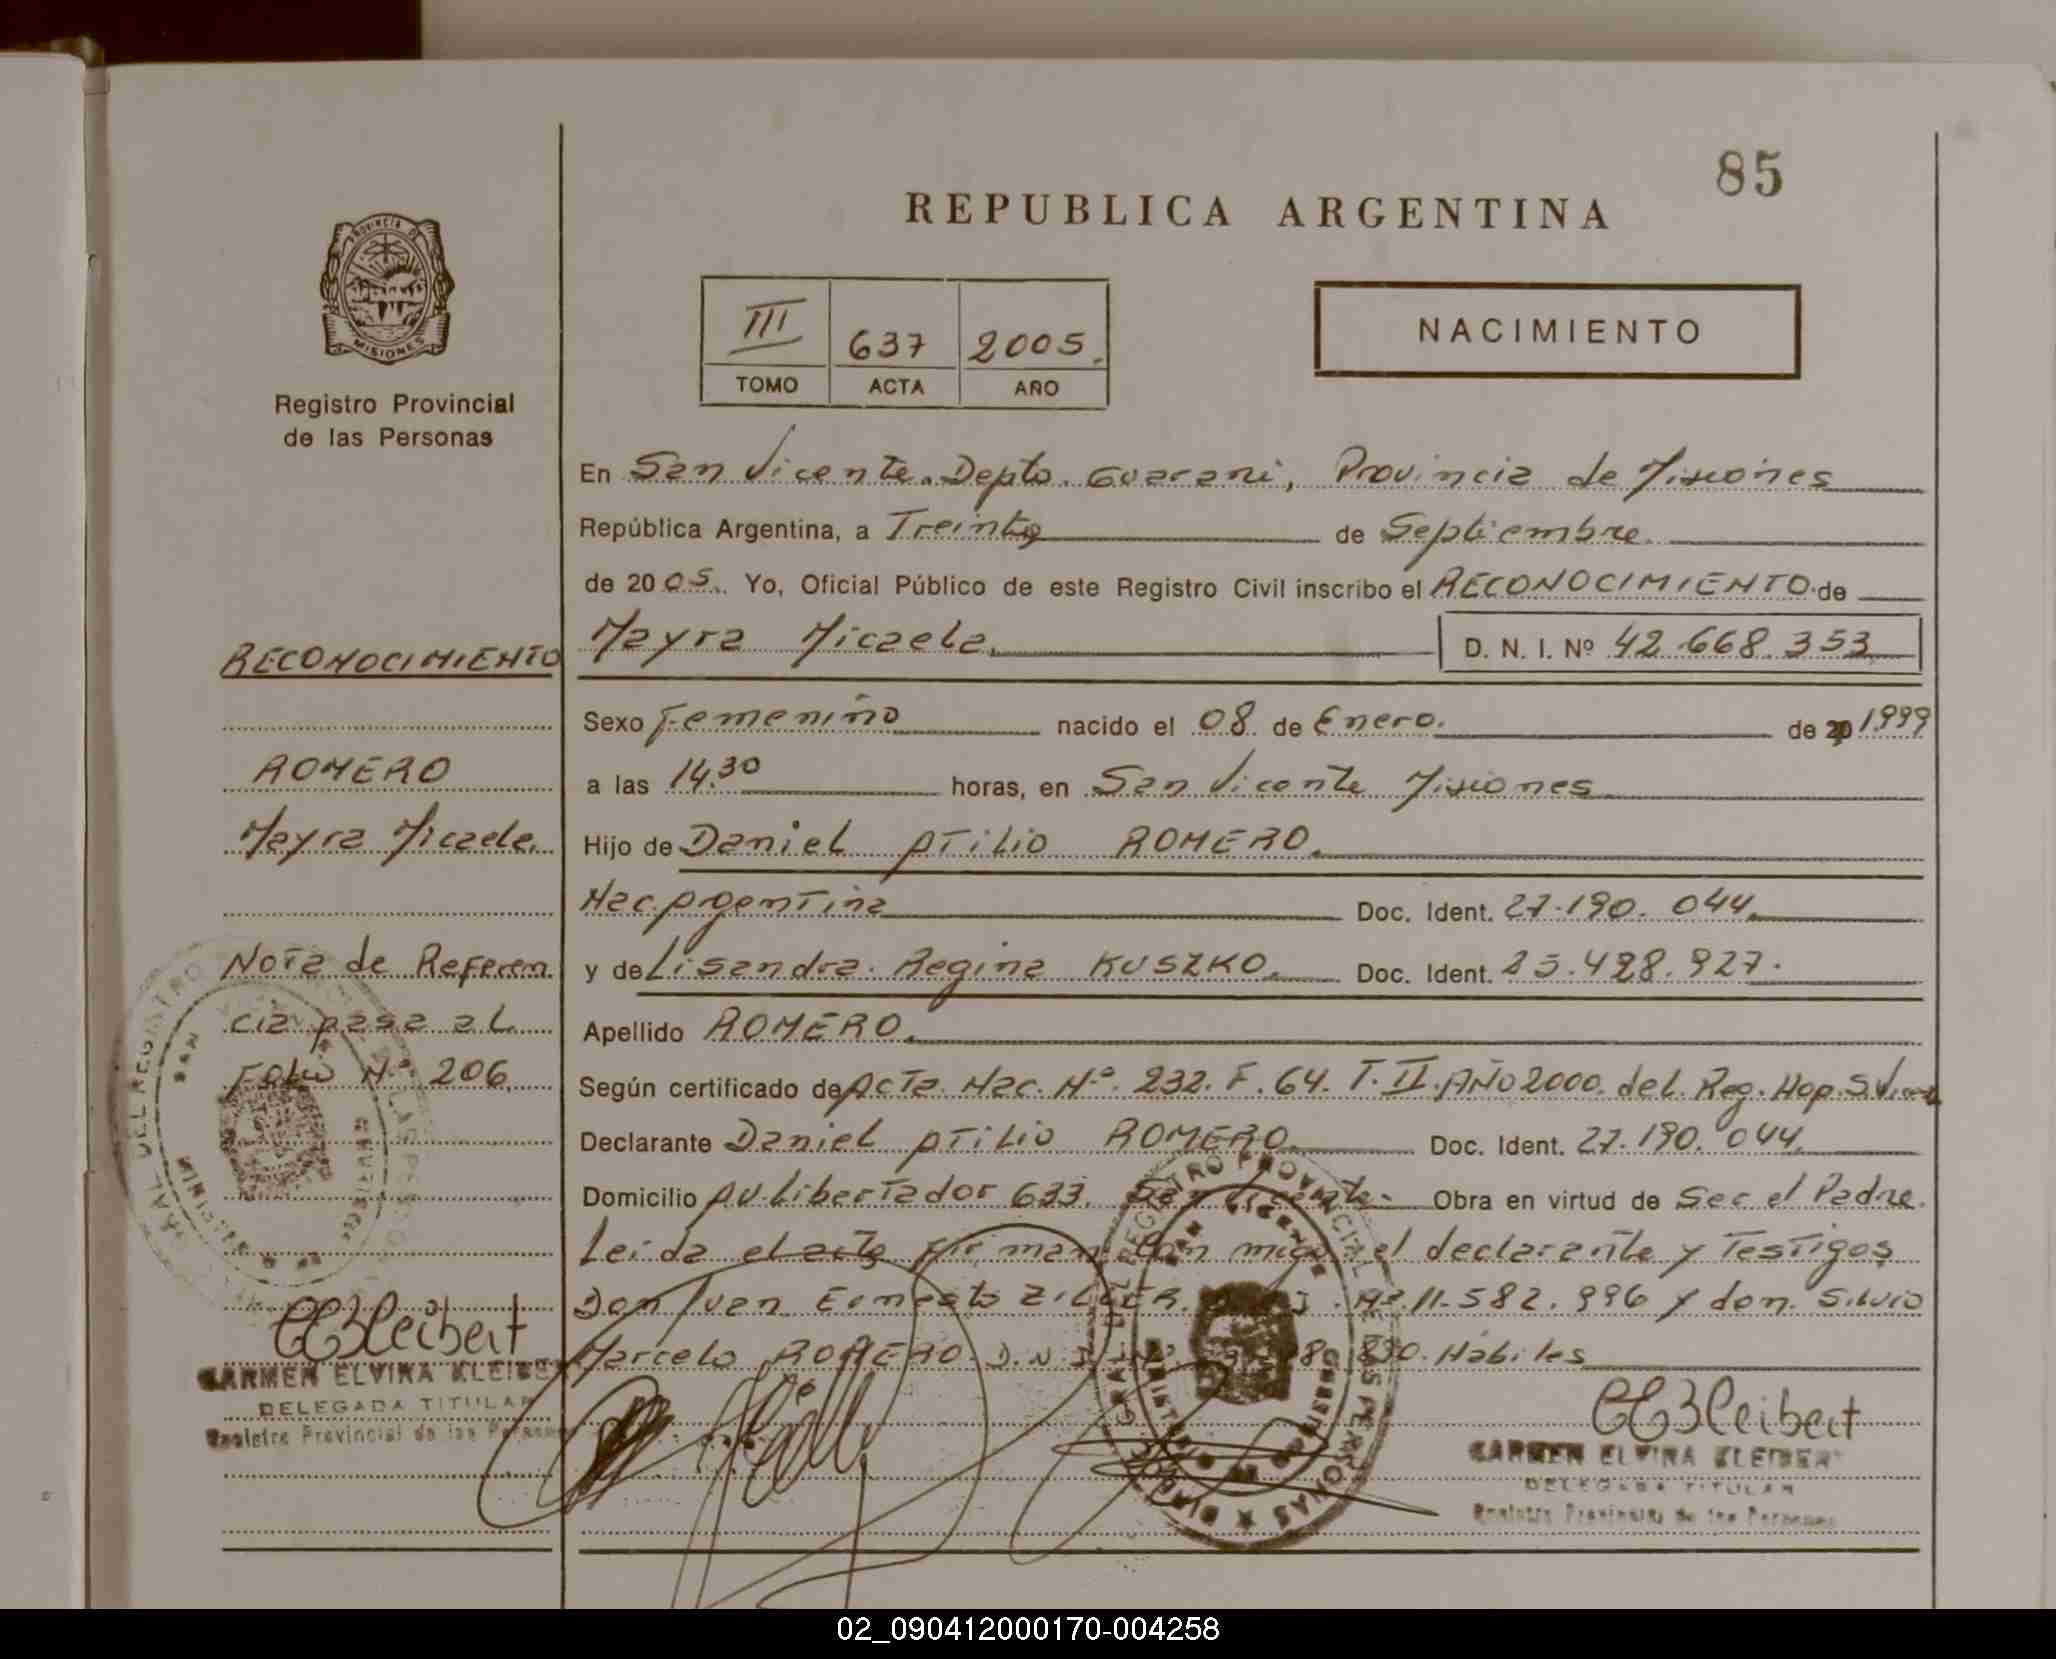 85
REPUBLICA ARGENTINA
PROVINCIA DE
MISIONES
Registro Provincial
de las Personas
III 637 2005.
TOMO ACTA AÑO
NACIMIENTO
En San Vicente. Depto. Guarani, Provincia de Misiones
República Argentina, a Treinta de Septiembre.
de 2005. Yo, Oficial Público de este Registro Civil inscribo el RECONOCIMIENTO de
Mayra Micaela. D. N. I. Nº 42.668.353
Sexo Femenino nacido el 08 de Enero. de 1999
a las 14.30 horas, en San Vicente Misiones
Hijo de Daniel Atilio ROMERO.
Nac. Argentina Doc. Ident. 27.190.044
y de Lisandra Regina KUSZKO. Doc. Ident. 25.428.927.
Apellido ROMERO.
Según certificado de Acta Nac. Nº 232. F. 64. T. II. AÑO 2000. del Reg. Hop. S.
Declarante Daniel Atilio ROMERO. Doc. Ident. 27.190.044.
Domicilio Av. Libertador 633. San Vicente. Obra en virtud de Ser el Padre.
Leida el acta firman con migo el declarante y Testigos
Don Juan Ernesto 11.582.996 y don Silvio
Marcelo ROMERO. D.N.I. 830. Habiles
RECONOCIMIENTO
ROMERO
Mayra Micaela.
Nota de Referen
cia pasa al
Folio Nº 206.
CEKleibert
CARMEN ELVIRA KLEIBER
DELEGADA TITULAR
Registro Provincial de las Personas
CEKleibert
CARMEN ELVIRA KLEIBER
DELEGADA TITULAR
Registro Provincial de las Personas
DIREC. GRAL. DEL REGISTRO PROVINCIAL DE LAS PERSONAS
SAN VICENTE
02_090412000170-004258